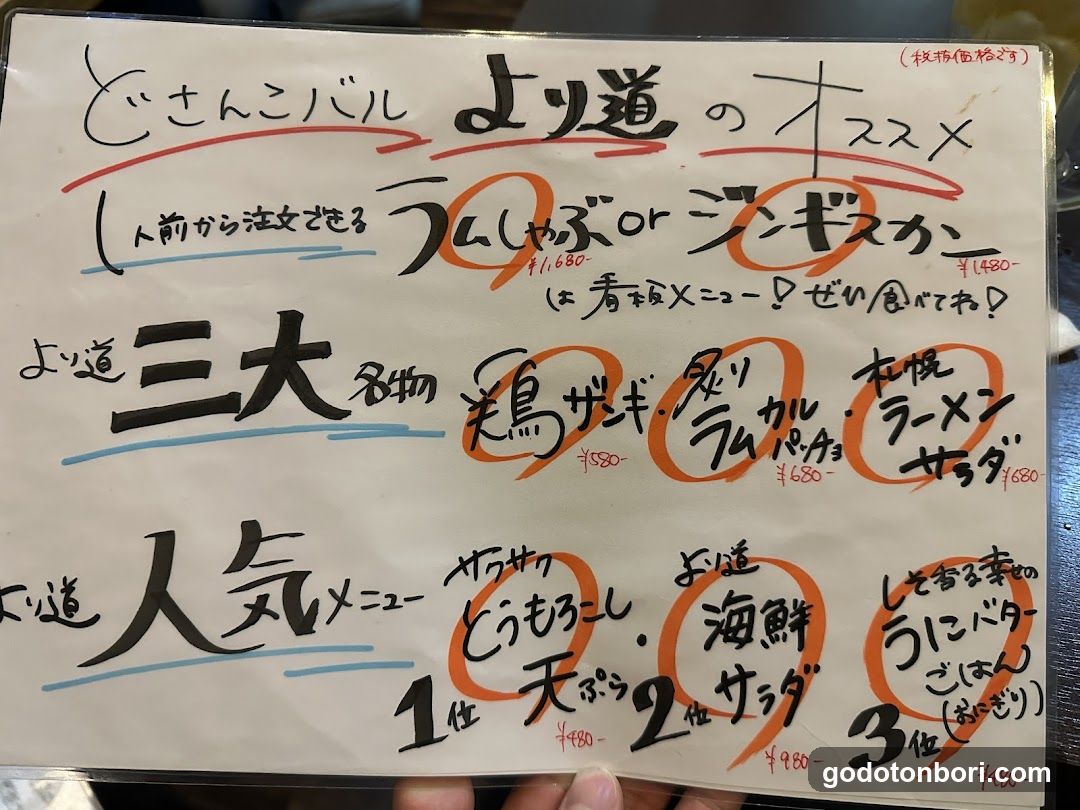 (税抜価格です)
どさんこバル より道 の オススメ
1人前から注文できる ラムしゃぶ or ジンギスカン
¥1,680- ¥1,480-
は 看板メニュー! ぜひ食べてね!
より道 三大 名物 鶏ザンギ・炙りラムカルパッチョ・札幌ラーメンサラダ
¥580- ¥680- ¥680-
より道 人気メニュー
1位 サクサクとうもろこし天ぷら・
¥480-
2位 より道海鮮サラダ
¥980-
3位 しそ香る幸せのうにバターごはん(おにぎり)
godotonbori.com